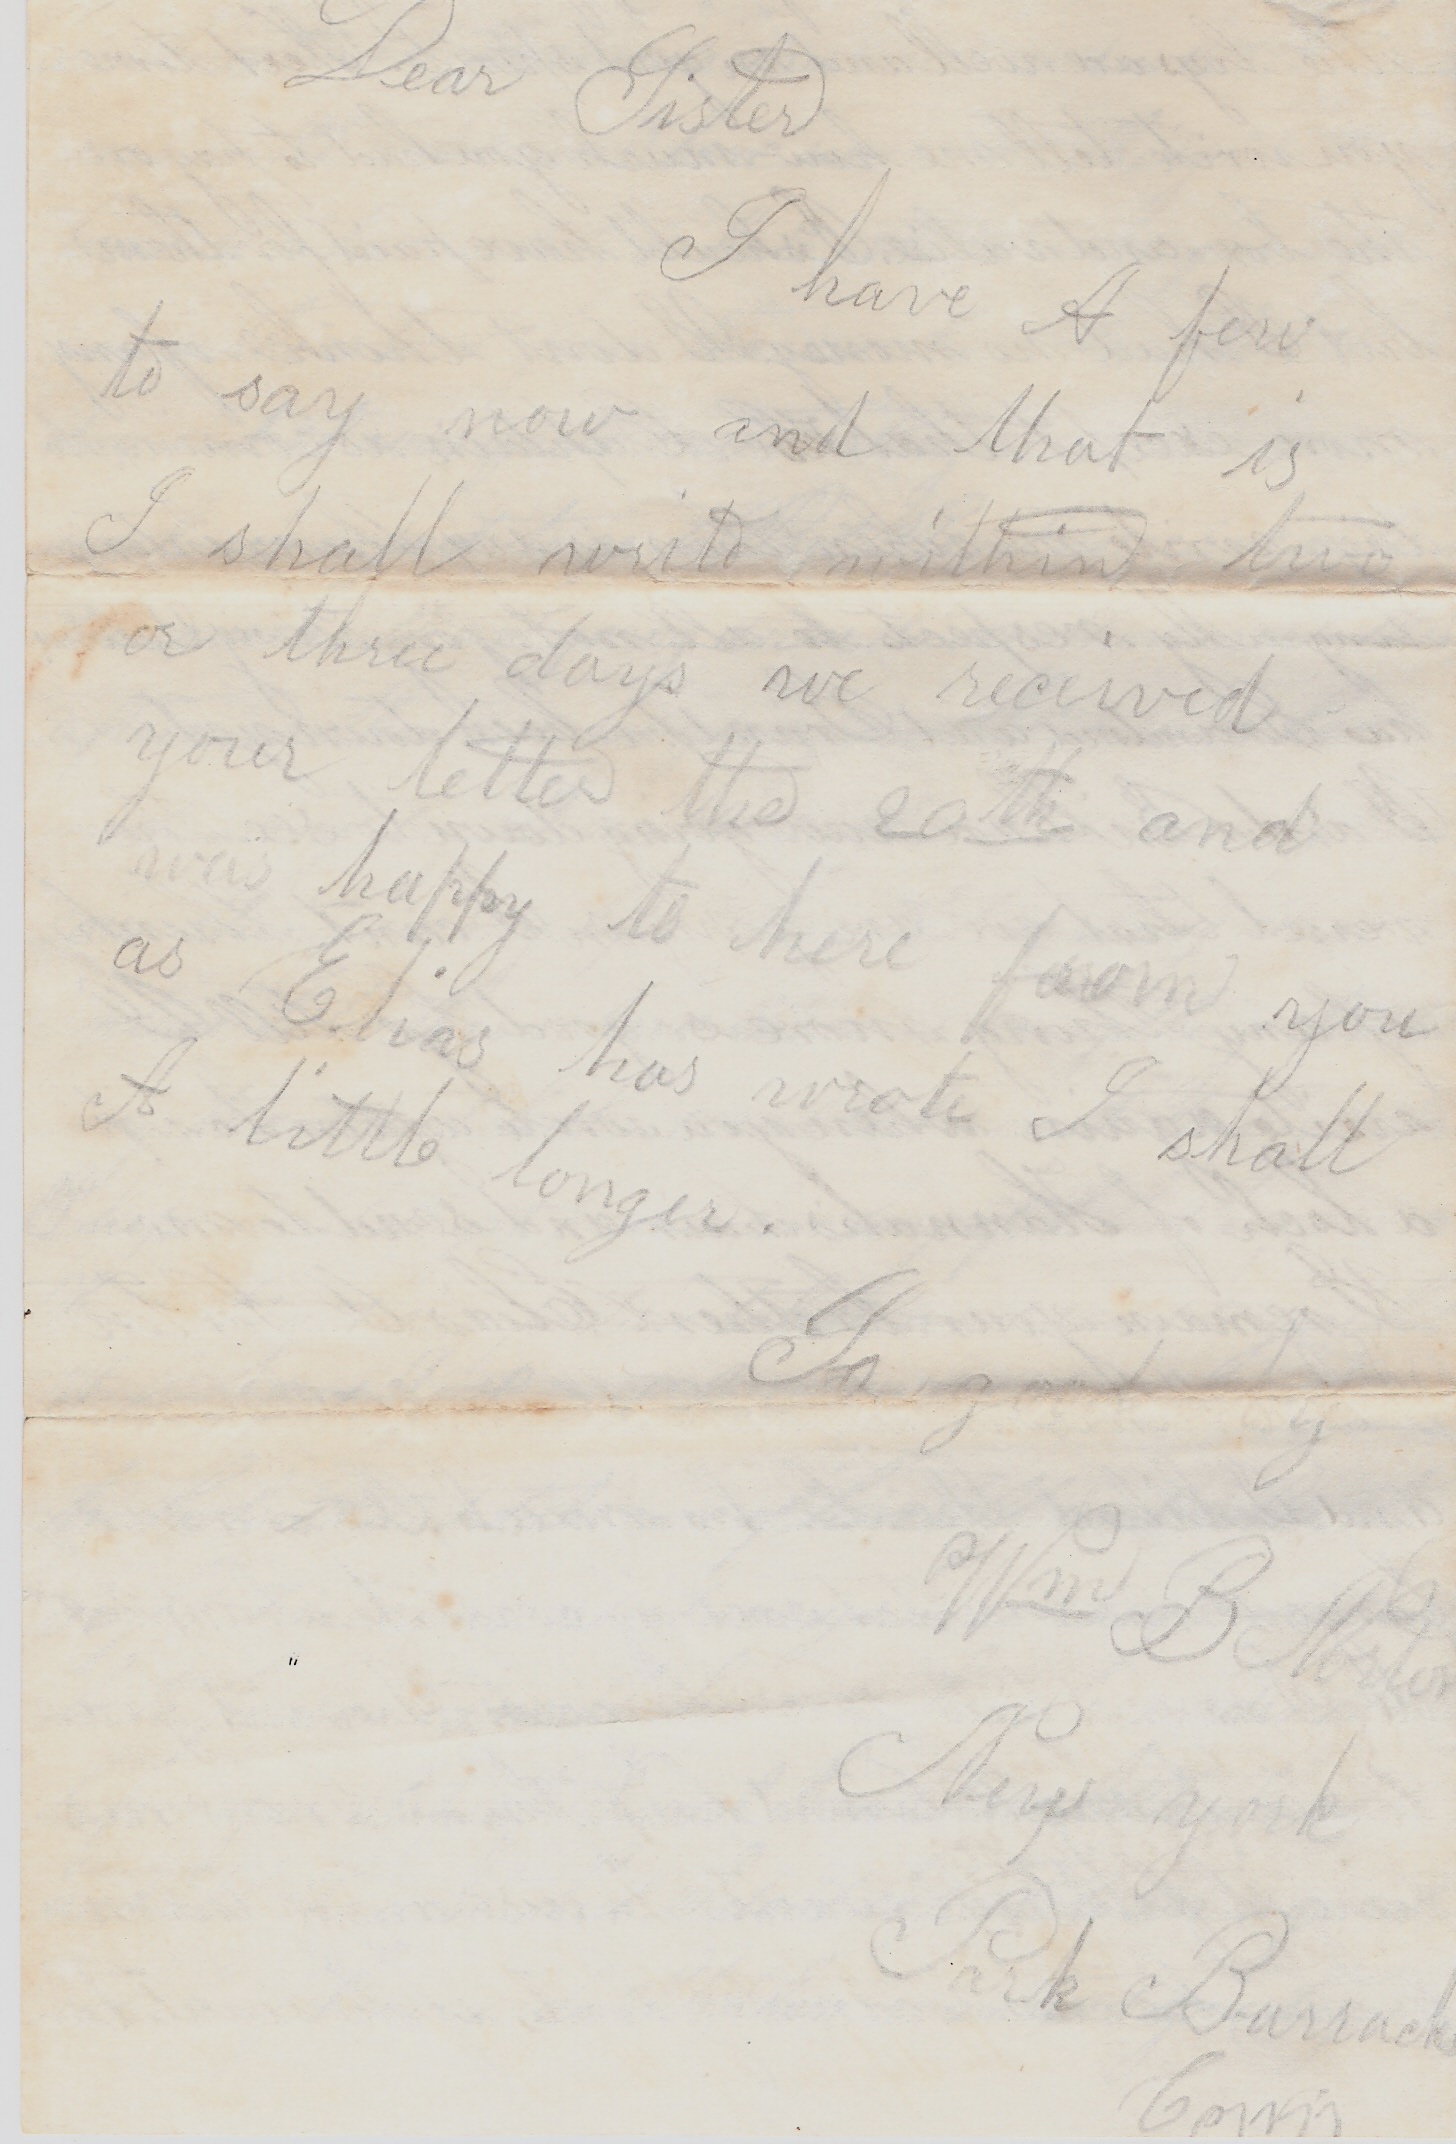 Dear Sister
I have A few
to say now and that is
I shall write within two
or three days we received
your letter the 20th and
was happy to here from you
as Elias has wrote I shall
A little longer.
So good by
Wm B Norton
New york
Park Barracks